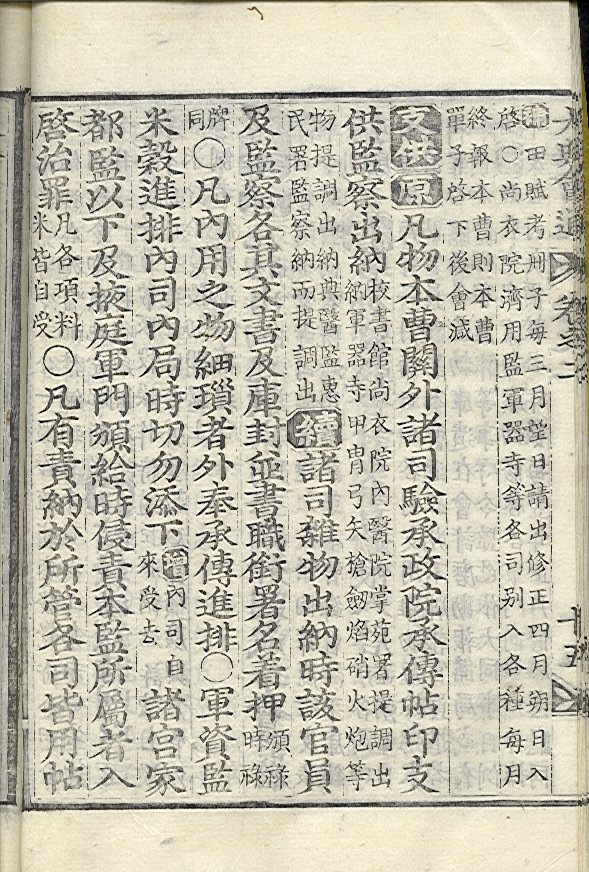 大典會通 卷之二 十五
田賦考冊子每三月望日請出修正四月朔日入
啓○尚衣院濟用監軍器寺等各司別入各種每月
終報本曹則本曹
單子啓下後會減
支供 原 凡物本曹關外諸司驗承政院承傳帖印支
供監察出納 校書館尚衣院內醫院掌苑署提調出
納軍器寺甲冑弓矢槍劒焰硝火炮等
物提調出納典醫監惠
民署監察納而提調出 續 諸司雜物出納時該官員
及監察各具文書及庫封並書職銜署名着押 頒祿
時祿
牌
同 ○凡內用之物細瑣者外奉承傳進排○軍資監
米穀進排內司內局時切勿添下 增 內司自
來受去 諸宮家
都監以下及掖庭軍門頒給時侵責本監所屬者入
啓治罪 凡各項料
米皆自受 ○凡有責納於所管各司皆用帖